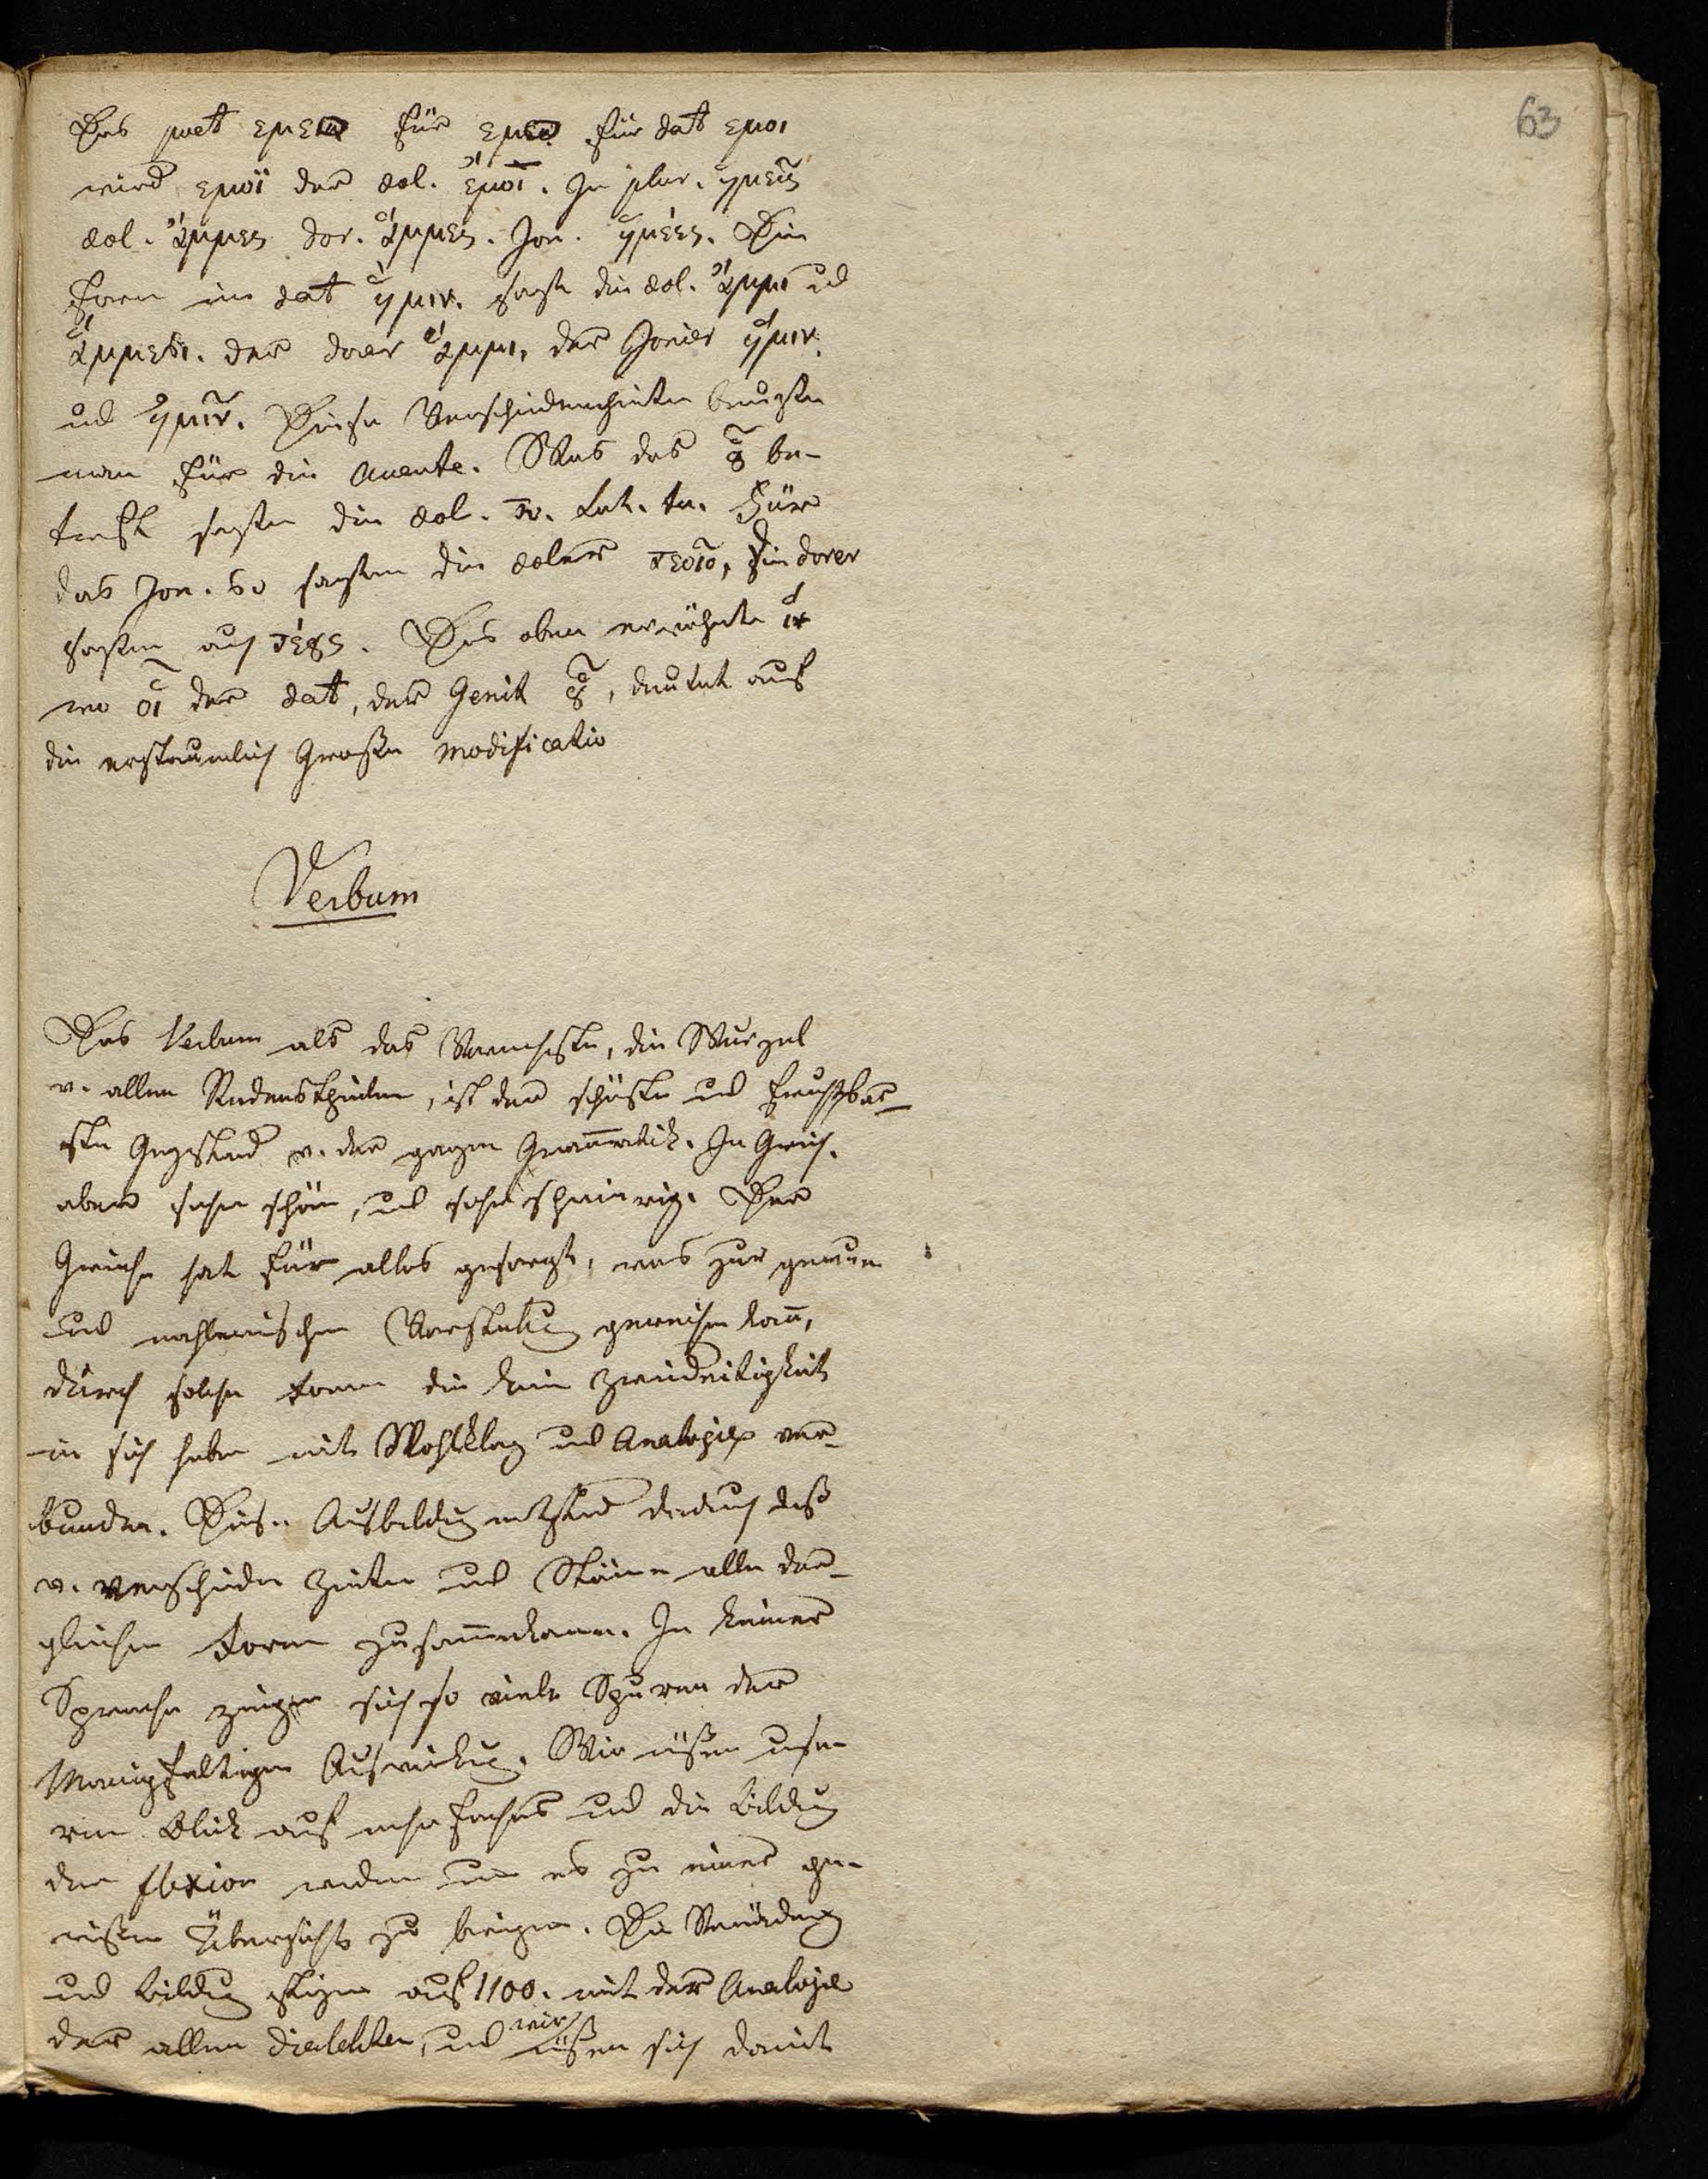 63
Das poet εμειο für εμεο für dat εμοι
wird εμοϊ der aeol. ἔμοϊ. In plur. ἡμεῖς
aeol. ἄμμες dor. ἅμμες. Jon. ἡμέες. Die
Form im dat ἥμιν. sagt die aeol. ἄμμι und
ἄμμεσι. der doer ἅμμι, der Jonier ἥμιν
und ἡμῖν. Diese Verschiedenheiten
man für die Accente. Was das οὗ be-
trift sagten die aeol. τυ. Lat. tu. Für
das Jon. so sagten die aeoler τεοῖο, die dorer
sagten auch τέους. Das oben erwähnte ἵν
wo οἷ der dat, der Genit οὗ, deutet auf
die erstaunlich Große modificatio
Verbum
Das Verbum als das Vornehmste, die Wurzel
v. allen Redenstheilen, ist der schönste und fruchtbar-
ste Gegstand v. der ganzen Gram̄atik. In Griech.
aber sehr schön, und sehr schwierig. Der
Grieche hat für alles gesorgt, was zur genauen
und mahlerischen Vorstelung gereichen kan̄,
durch solche Formen die kein Zweideutigkeit
in sich haben mit Wohlklang und Analogie ver-
bunden. Diese Ausbildung entstand dadurch daß
v. verschieden Zeiten und Stäm̄e alle der-
gleichen Formen zusam̄enkamen. In keiner
Sprache zeigen sich so viele Spuren der
Manigfaltigen Auswirkung. Wir müßen unse-
ren Blick auf und die Bildung
der flexion wenden um es zu einer ge-
wißen Übersicht zu bringen. Die Verändrung
und Bildung steigen auf 1100. mit der Analogie
der allen dialekten, und wir müßen sich damit